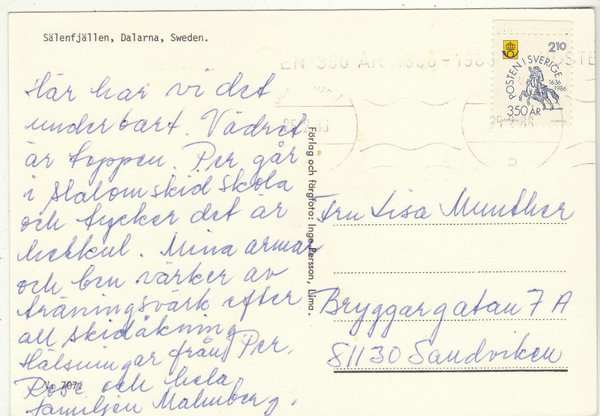 Sälenfjällen, Dalarna, Sweden.
Här har vi det
underbart. Vädret
är toppen. Per går
i slalomskidskola
och tycker det är
helkul. Mina armar
och ben värker av
träningsvärk efter
all skidåkning
Hälsningar från Per,
Rose och hela
familjen Malmberg.
Nr 7071
Förlag och färgfoto: Inge Persson, Lima.
210
POSTEN I SVERIGE
1636
1986
350 ÅR
EN 350 ÅR 1636-1986
Fru Lisa Munther
Bryggargatan 7 A
81130 Sandviken